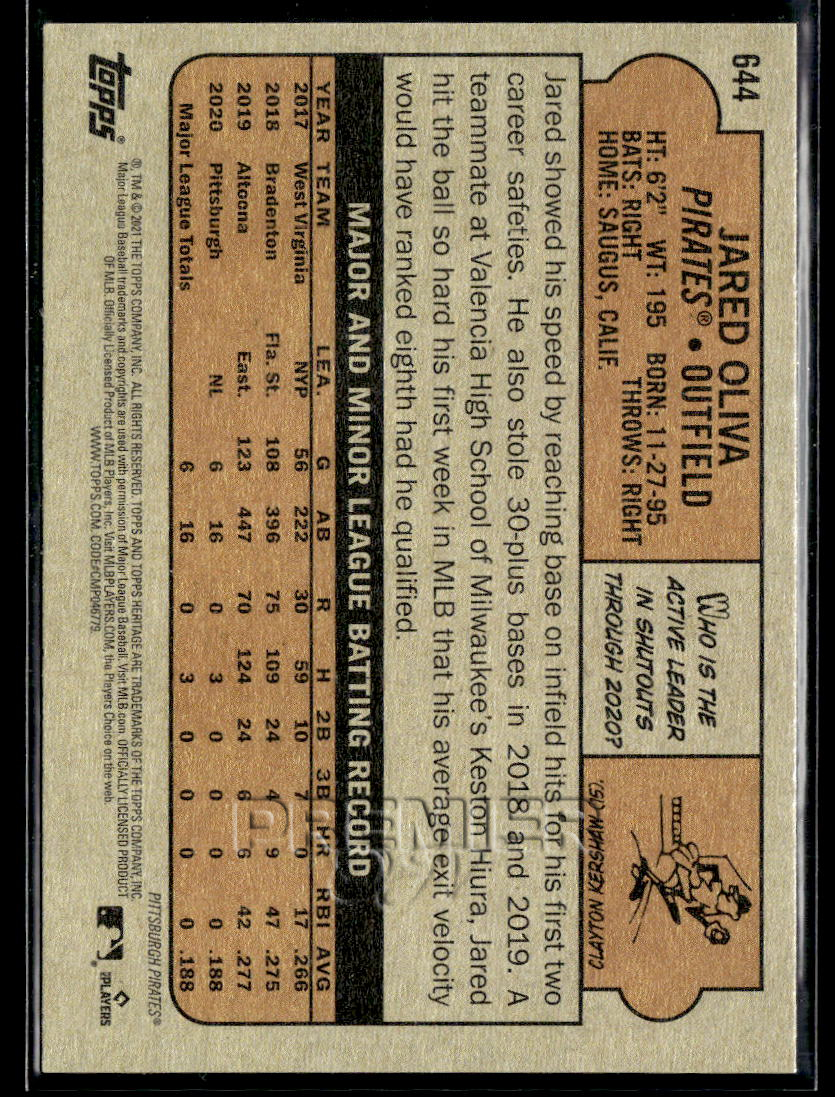 644
JARED OLIVA
PIRATES® • OUTFIELD
HT: 6'2" WT: 195 BORN: 11-27-95
BATS: RIGHT THROWS: RIGHT
HOME: SAUGUS, CALIF.
WHO IS THE
ACTIVE LEADER
IN SHUTOUTS
THROUGH 2020?
CLAYTON KERSHAW (15).
Jared showed his speed by reaching base on infield hits for his first two
career safeties. He also stole 30-plus bases in 2018 and 2019. A
teammate at Valencia High School of Milwaukee's Keston Hiura, Jared
hit the ball so hard his first week in MLB that his average exit velocity
would have ranked eighth had he qualified.
MAJOR AND MINOR LEAGUE BATTING RECORD
YEAR TEAM LEA. G AB R H 2B 3B HR RBI AVG
2017 West Virginia NYP 56 222 30 59 10 7 0 17 .266
2018 Bradenton Fla. St. 108 396 75 109 24 4 9 47 .275
2019 Altoona East. 123 447 70 124 24 6 6 42 .277
2020 Pittsburgh NL 6 16 0 3 0 0 0 0 .188
Major League Totals 6 16 0 3 0 0 0 0 .188
PITTSBURGH PIRATES®
topps®
®, TM & © 2021 THE TOPPS COMPANY, INC. ALL RIGHTS RESERVED. TOPPS AND TOPPS HERITAGE ARE TRADEMARKS OF THE TOPPS COMPANY, INC.
Major League Baseball trademarks and copyrights are used with permission of Major League Baseball. Visit MLB.com. OFFICIALLY LICENSED PRODUCT
OF MLB. Officially Licensed Product of MLB Players, Inc. Visit MLBPLAYERS.COM, the Players Choice on the web.
WWW.TOPPS.COM. CODE#CMP046779
PLAYERS
PREMIER